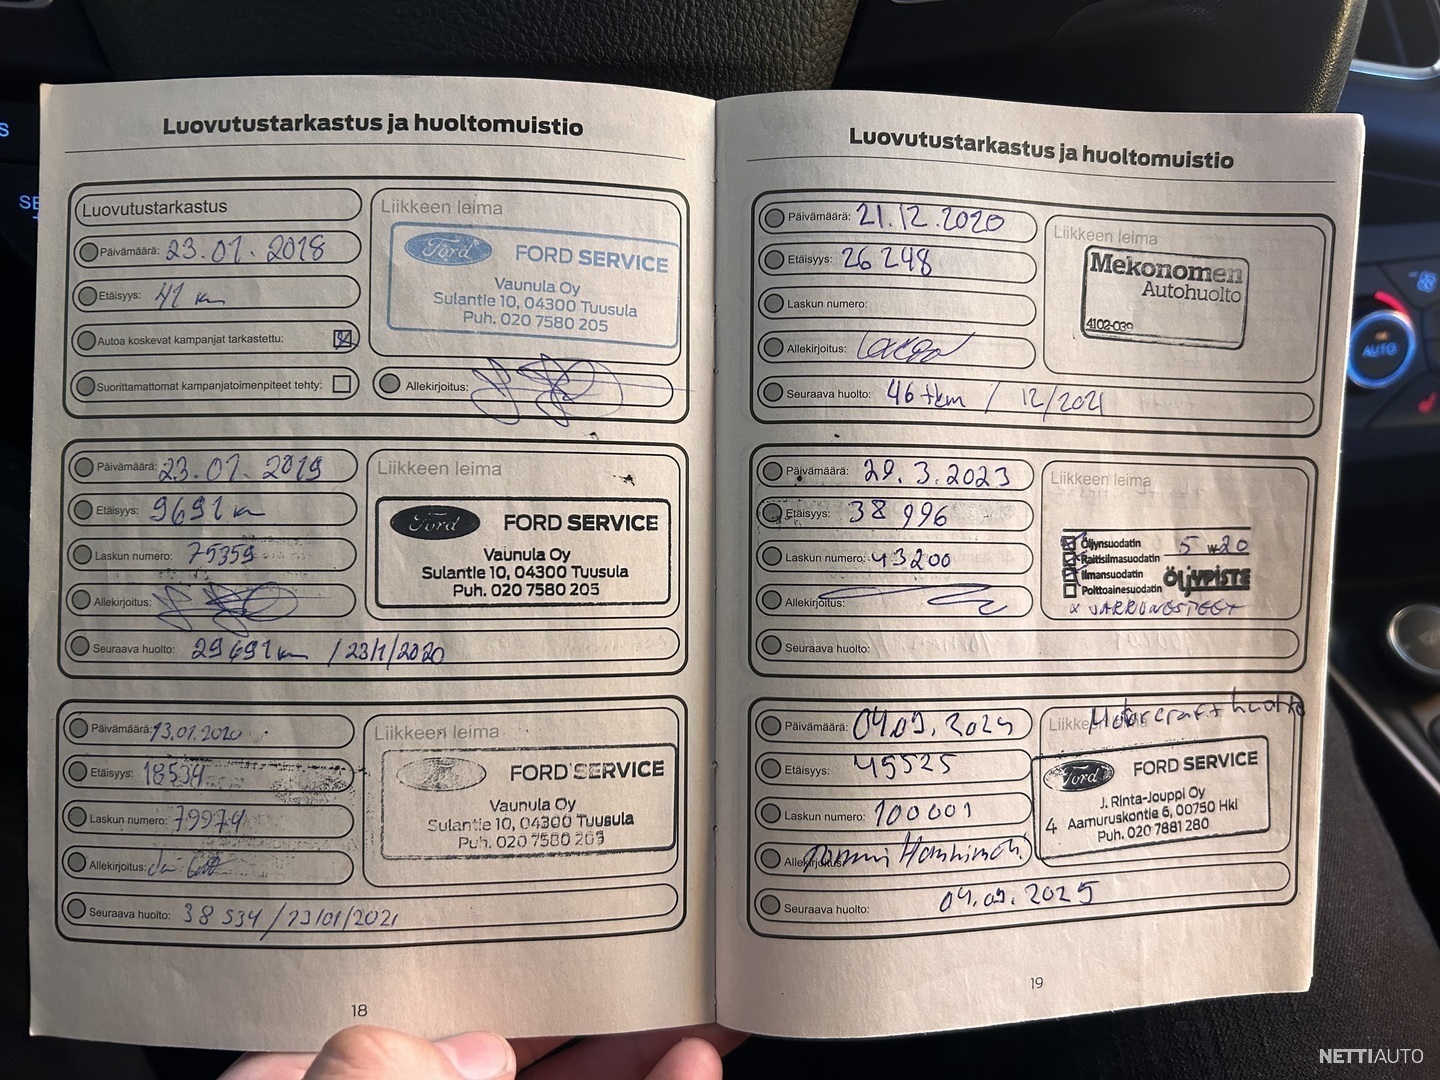 Luovutustarkastus ja huoltomuistio
Luovutustarkastus
Päivämäärä: 23.01.2018
Etäisyys: 41 km
Autoa koskevat kampanjat tarkastettu:
Suorittamattomat kampanjatoimenpiteet tehty:
Liikkeen leima
Ford FORD SERVICE
Vaunula Oy
Sulantie 10, 04300 Tuusula
Puh. 020 7580 205
Allekirjoitus:
Päivämäärä: 23.01.2019
Etäisyys: 9691 km
Laskun numero: 75359
Allekirjoitus:
Seuraava huolto: 29691 km / 23/1/2020
Liikkeen leima
Ford FORD SERVICE
Vaunula Oy
Sulantie 10, 04300 Tuusula
Puh. 020 7580 205
Päivämäärä: 13.01.2020
Etäisyys: 18534
Laskun numero: 79974
Allekirjoitus:
Seuraava huolto: 38 534 / 23/01/2021
Liikkeen leima
FORD SERVICE
Vaunula Oy
Sulantie 10, 04300 Tuusula
Puh. 020 7580 205
18
Luovutustarkastus ja huoltomuistio
Päivämäärä: 21.12.2020
Etäisyys: 26 248
Laskun numero:
Allekirjoitus:
Seuraava huolto: 46 tkm / 12/2021
Liikkeen leima
Mekonomen
Autohuolto
4102-039
Päivämäärä: 29.3.2023
Etäisyys: 38 996
Laskun numero: 43200
Allekirjoitus:
Seuraava huolto:
Liikkeen leima
Öljynsuodatin 5 w 20
Raitisilmasuodatin
Ilmansuodatin ÖLJYPISTE
Polttoainesuodatin
x JARRUNESTEET
Päivämäärä: 04.09.2024
Etäisyys: 45525
Laskun numero: 100001
Allekirjoitus:
Seuraava huolto: 04.09.2025
Liikkeen leima Motorcraft huolto
Ford FORD SERVICE
J. Rinta-Jouppi Oy
4 Aamuruskontie 6, 00750 Hki
Puh. 020 7881 280
19
AUTO
NETTIAUTO